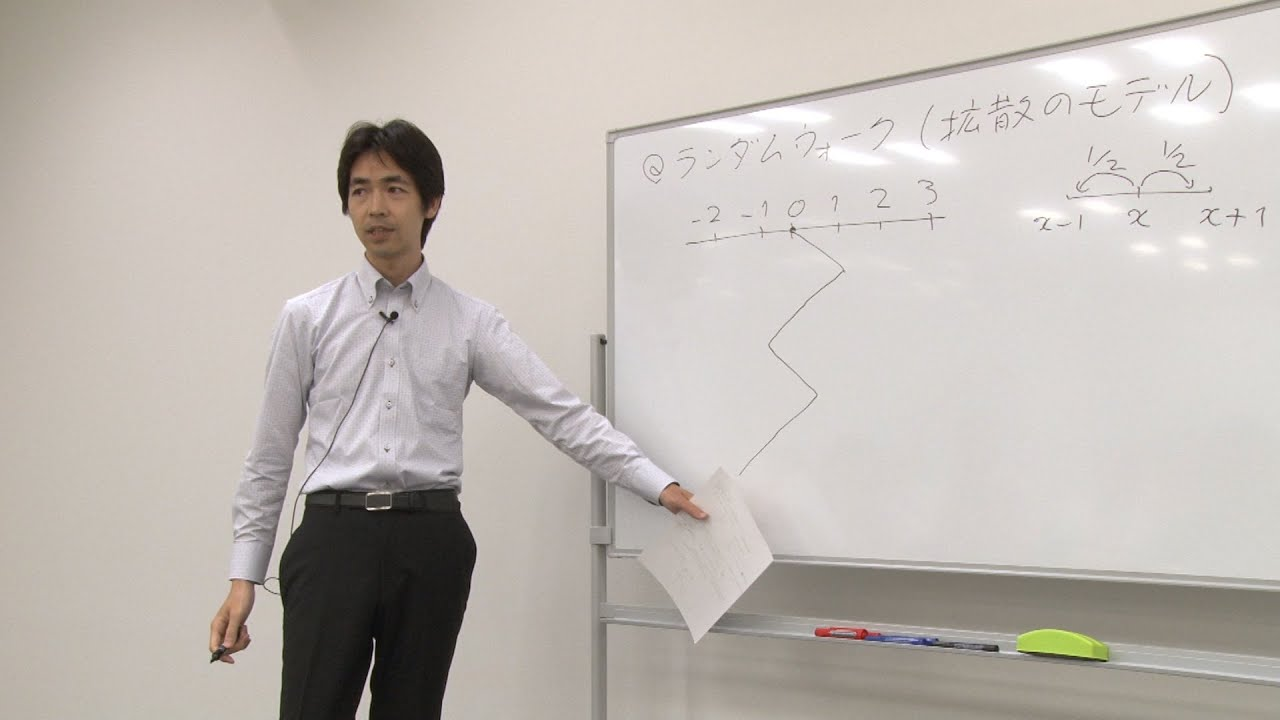 @ランダムウォーク(拡散のモデル)
-2 -1 0 1 2 3
1/2 1/2
x-1 x x+1